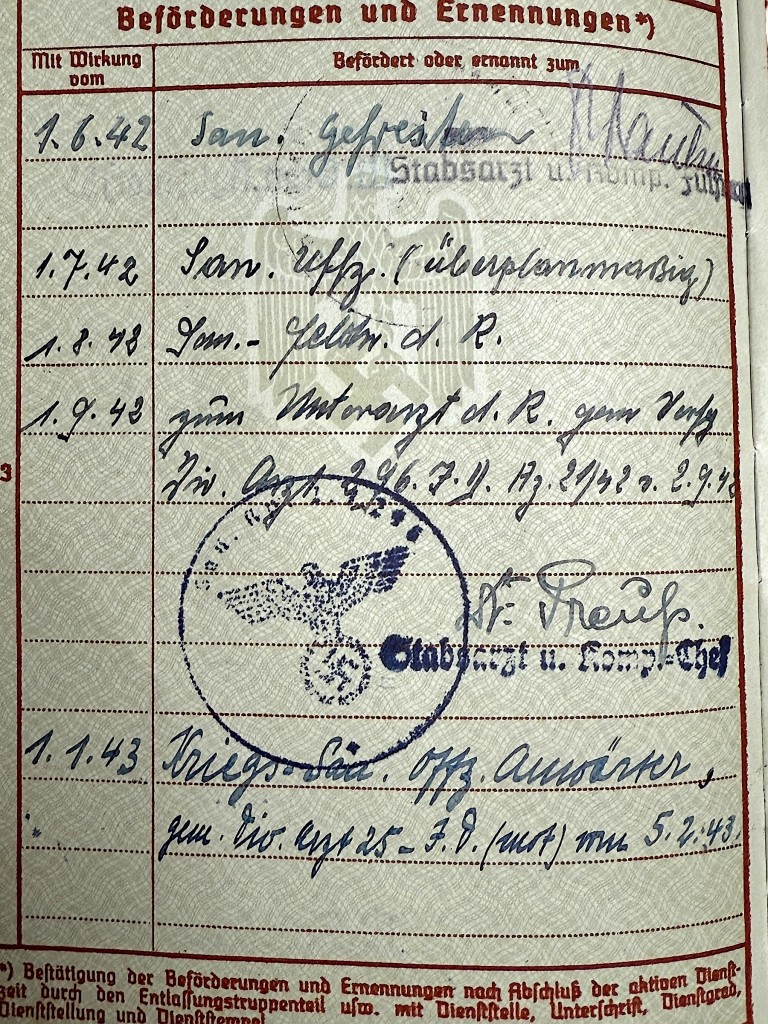 Beförderungen und Ernennungen*)
Mit Wirkung vom
Befördert oder ernannt zum
1.6.42 San. Gefreiten
Stabsarzt u. Komp.
1.7.42 San. Uffz. (überplanmäßig)
1.8.42 San.- Feldw. d. R.
1.9.42 zum Unterarzt d. R. gem Verfg
Div. Arzt 296. J. D. Az. 21/42 v. 2.9.42
Dr. Preuß.
Stabsarzt u. Komp.-Chef
1.1.43 Kriegs-San. Offz. Anwärter,
" gem. Div. Arzt 25-J.D. (mot) vom 5.2.43.
3
*) Bestätigung der Beförderungen und Ernennungen nach Abschluß der aktiven Dienst-
zeit durch den Entlassungstruppenteil usw. mit Dienststelle, Unterschrift, Dienstgrad,
Dienststellung und Dienststempel